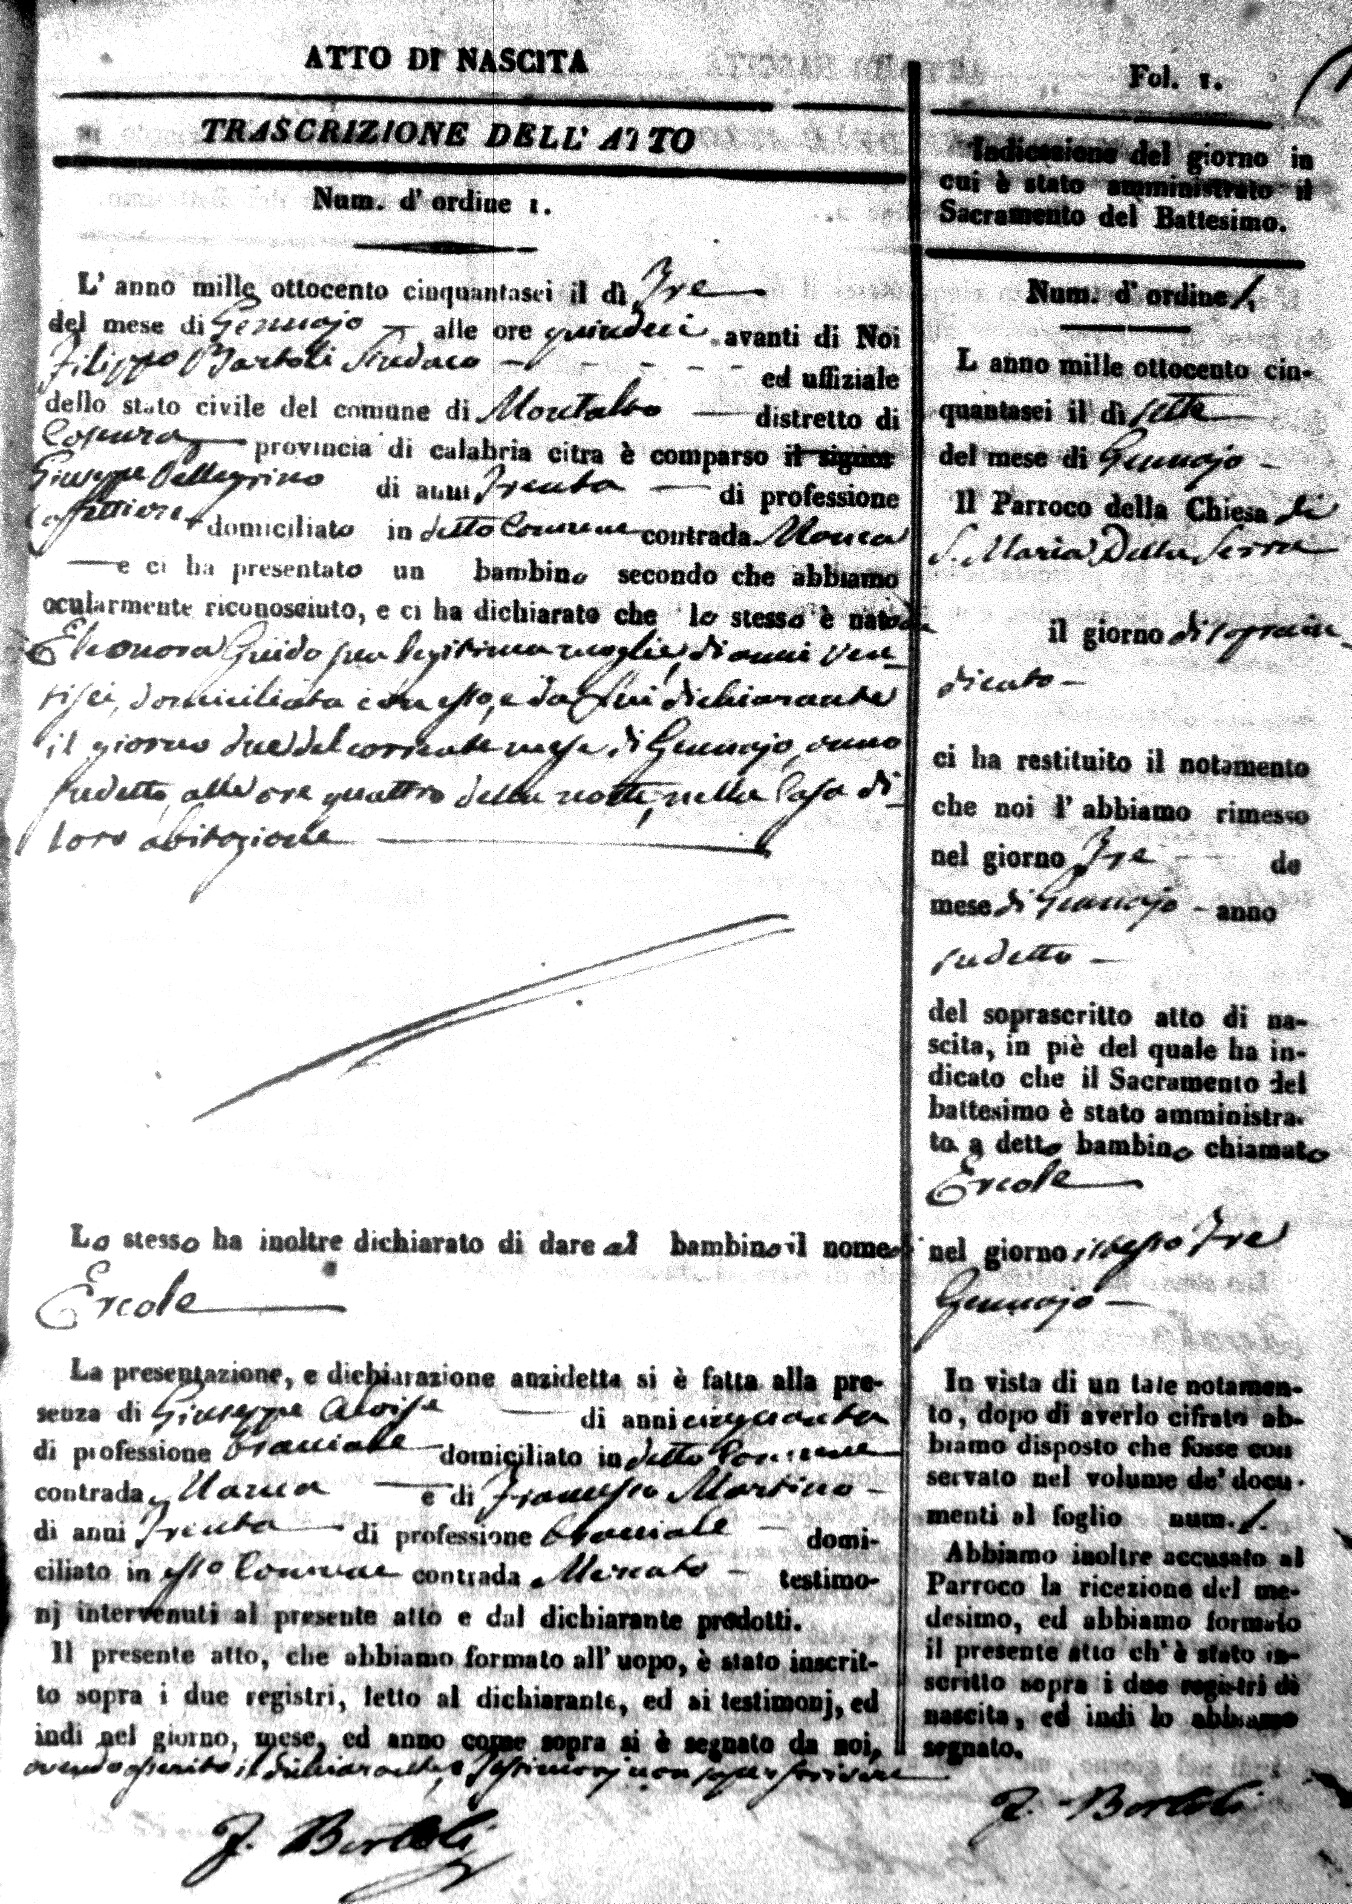 ATTO DI NASCITA
TRASCRIZIONE DELL' ATTO
Num. d' ordine 1.
L' anno mille ottocento cinquantasei il dì Tre
del mese di Gennajo alle ore quindici avanti di Noi
Filippo Bartoli Sindaco ed uffiziale
dello stato civile del comune di Montalto distretto di
Cosenza provincia di calabria citra è comparso il signor
Giuseppe Pellegrino di anni Trenta di professione
domiciliato in detto Comune contrada
e ci ha presentato un bambino secondo che abbiamo
ocularmente riconosciuto, e ci ha dichiarato che lo stesso è nato da
Eleonora Guido sua legittima moglie, di anni ven-
tisei, domiciliata con esso, e da Lui dichiarante
il giorno due del corrente mese di Gennajo, anno
sudetto, alle ore quattro della notte, nella Casa di
loro abitazione
Lo stesso ha inoltre dichiarato di dare al bambino il nome di
Ercole
La presentazione, e dichiarazione anzidetta si è fatta alla pre-
senza di Giuseppe Aloise di anni cinquanta
di professione Bracciale domiciliato in detto Comune
contrada e di Francesco Martino
di anni Trenta di professione Bracciale domi-
ciliato in esso Comune contrada Mercato testimo-
nj intervenuti al presente atto e dal dichiarante prodotti.
Il presente atto, che abbiamo formato all' uopo, è stato inscrit-
to sopra i due registri, letto al dichiarante, ed ai testimonj, ed
indi nel giorno, mese, ed anno come sopra si è segnato da noi,
avendo asserito il dichiarante, e Testimonj non saper scrivere
F. Bartoli
Fol. 1.
Indicazione del giorno in
cui è stato amministrato il
Sacramento del Battesimo.
Num. d' ordine 1.
L anno mille ottocento cin-
quantasei il dì sette
del mese di Gennajo
Il Parroco della Chiesa di
S. Maria Della Serra
il giorno di sopra in-
dicato
ci ha restituito il notamento
che noi l' abbiamo rimesso
nel giorno Tre de
mese di Gennajo anno
sudetto
del soprascritto atto di na-
scita, in piè del quale ha in-
dicato che il Sacramento del
battesimo è stato amministra-
to a detto bambino chiamato
Ercole
nel giorno istesso Tre
Gennajo
In vista di un tale notamen-
to, dopo di averlo cifrato ab-
biamo disposto che fosse con
servato nel volume de' docu-
menti al foglio num. 1.
Abbiamo inoltre accusato al
Parroco la ricezione del me-
desimo, ed abbiamo formato
il presente atto ch' è stato in-
scritto sopra i due registri di
nascita, ed indi lo abbiamo
segnato.
F. Bartoli